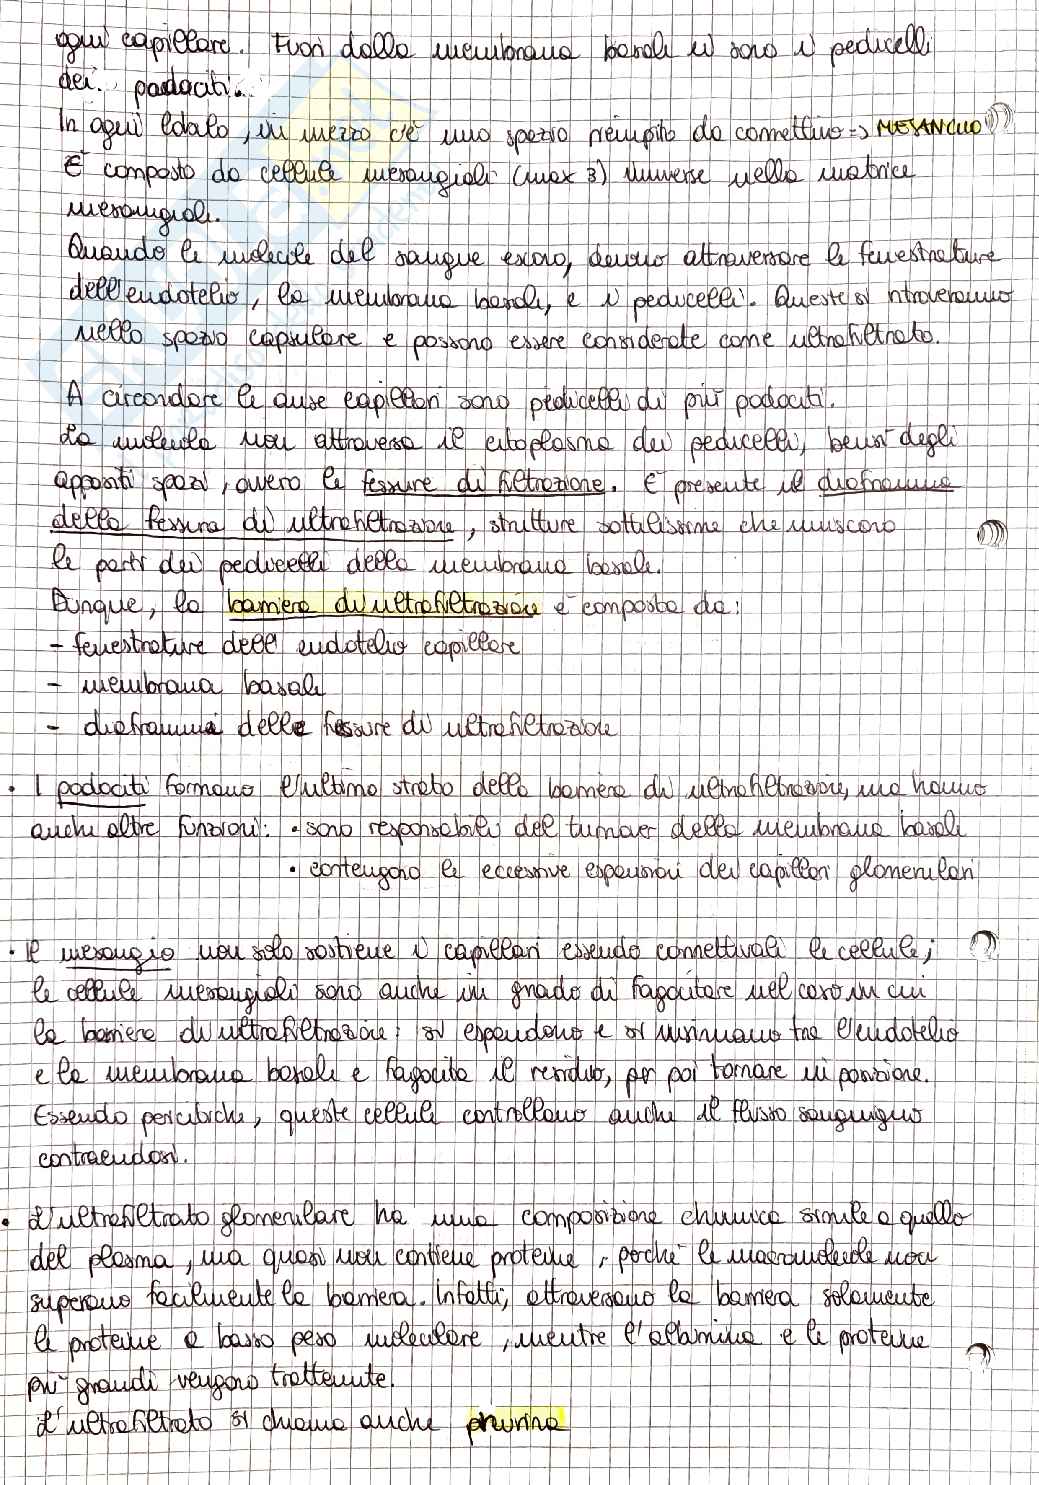 ogni capillare. Fuori dalla membrana basale vi sono i pedicelli
dei podociti.
In ogni lobulo, in mezzo c'è uno spazio riempito da connettivo → MESANGIO
È composto da cellule mesangiali (max 3) immerse nella matrice
mesangiale.
Quando le molecole del sangue escono, devono attraversare le fenestrature
dell'endotelio, la membrana basale, e i pedicelli. Queste si ritroveranno
nello spazio capsulare e possono essere considerate come ultrafiltrato.
A circondare le anse capillari sono pedicelli di più podociti.
La molecola non attraversa il citoplasma dei pedicelli, bensì degli
appositi spazi, ovvero le fessure di filtrazione. È presente il diaframma
della fessura di ultrafiltrazione, strutture sottilissime che uniscono
le parti dei pedicelli della membrana basale.
Dunque, la barriera di ultrafiltrazione è composta da:
- fenestrature dell'endotelio capillare
- membrana basale
- diaframma delle fessure di ultrafiltrazione
• I podociti formano l'ultimo strato della barriera di ultrafiltrazione, ma hanno
anche altre funzioni: • sono responsabili del turnover della membrana basale
• contengono le eccessive espansioni dei capillari glomerulari
• Il mesangio non solo sostiene i capillari essendo connettivali le cellule;
le cellule mesangiali sono anche in grado di fagocitare nel caso in cui
la barriera di ultrafiltrazione: si espandono e si insinuano tra l'endotelio
e la membrana basale e fagocita il residuo, per poi tornare in posizione.
Essendo pericitiche, queste cellule controllano anche il flusso sanguigno
contraendosi.
• L'ultrafiltrato glomerulare ha una composizione chimica simile a quello
del plasma, ma quasi non contiene proteine, perché le macromolecole non
superano facilmente la barriera. Infatti, attraversano la barriera solamente
le proteine a basso peso molecolare, mentre l'albumina e le proteine
più grandi vengono trattenute.
L'ultrafiltrato si chiama anche preurina